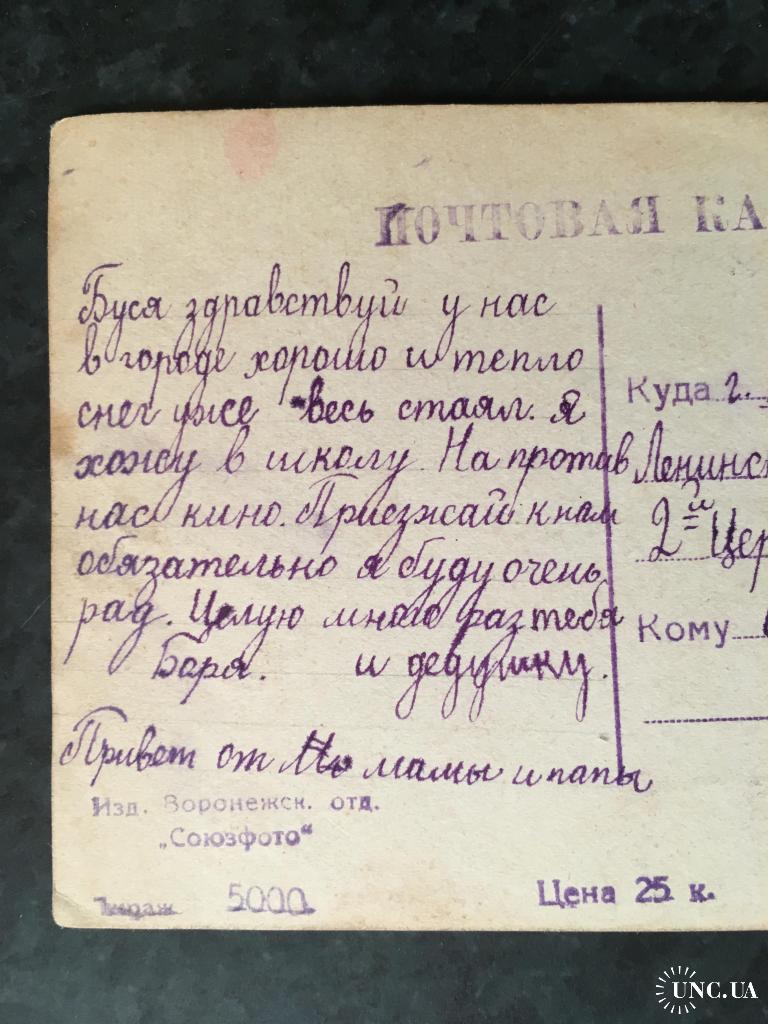 ПОЧТОВАЯ КА
Буся здравствуй у нас
в городе хорошо и тепло
снег уже весь стаял. Я
хожу в школу. На протав
нас кино. Приезжай к нам
обязательно я буду очень
рад. Целую много раз тебя
Боря. и дедушку.
Привет от мамы и папы
Куда г.
Ленинск
2й Цер
Кому
Изд. Воронежск. отд.
„Союзфото"
Тираж 5000
Цена 25 к.
UNC.UA